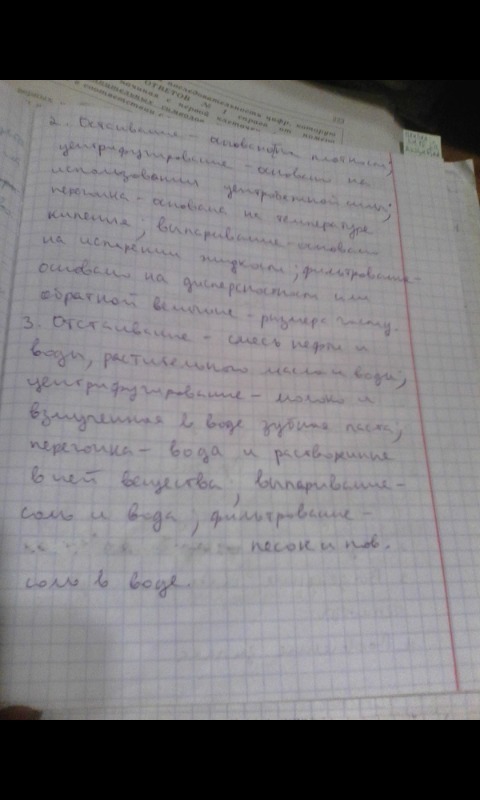 последовательность цифр, которую
ОТВЕТОВ № 1 справа от номера
начиная с первой клеточки
2. Отстаивание – основано на плотности;
центрифугирование – основано на
использовании центробежной силы;
перегонка – основана на температуре
кипения; выпаривание – основано
на испарении жидкости; фильтрование –
основано на дисперсности или
обратной величине – размера частиц.
3. Отстаивание – смесь нефти и
воды, растительного масла и воды;
центрифугирование – молоко и
взмученная в воде зубная паста;
перегонка – вода и растворенные
в ней вещества; выпаривание –
соль и вода; фильтрование –
песок и пов.
соль в воде.